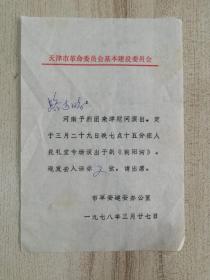 天津市革命委员会基本建设委员会
河南予剧团来津慰问演出。定
于三月二十九日晚七点十五分在人
民礼堂专场演出予剧《朝阳沟》。
现发去入场券2张。请出席。
市革委建委办公室
一九七八年三月廿七日